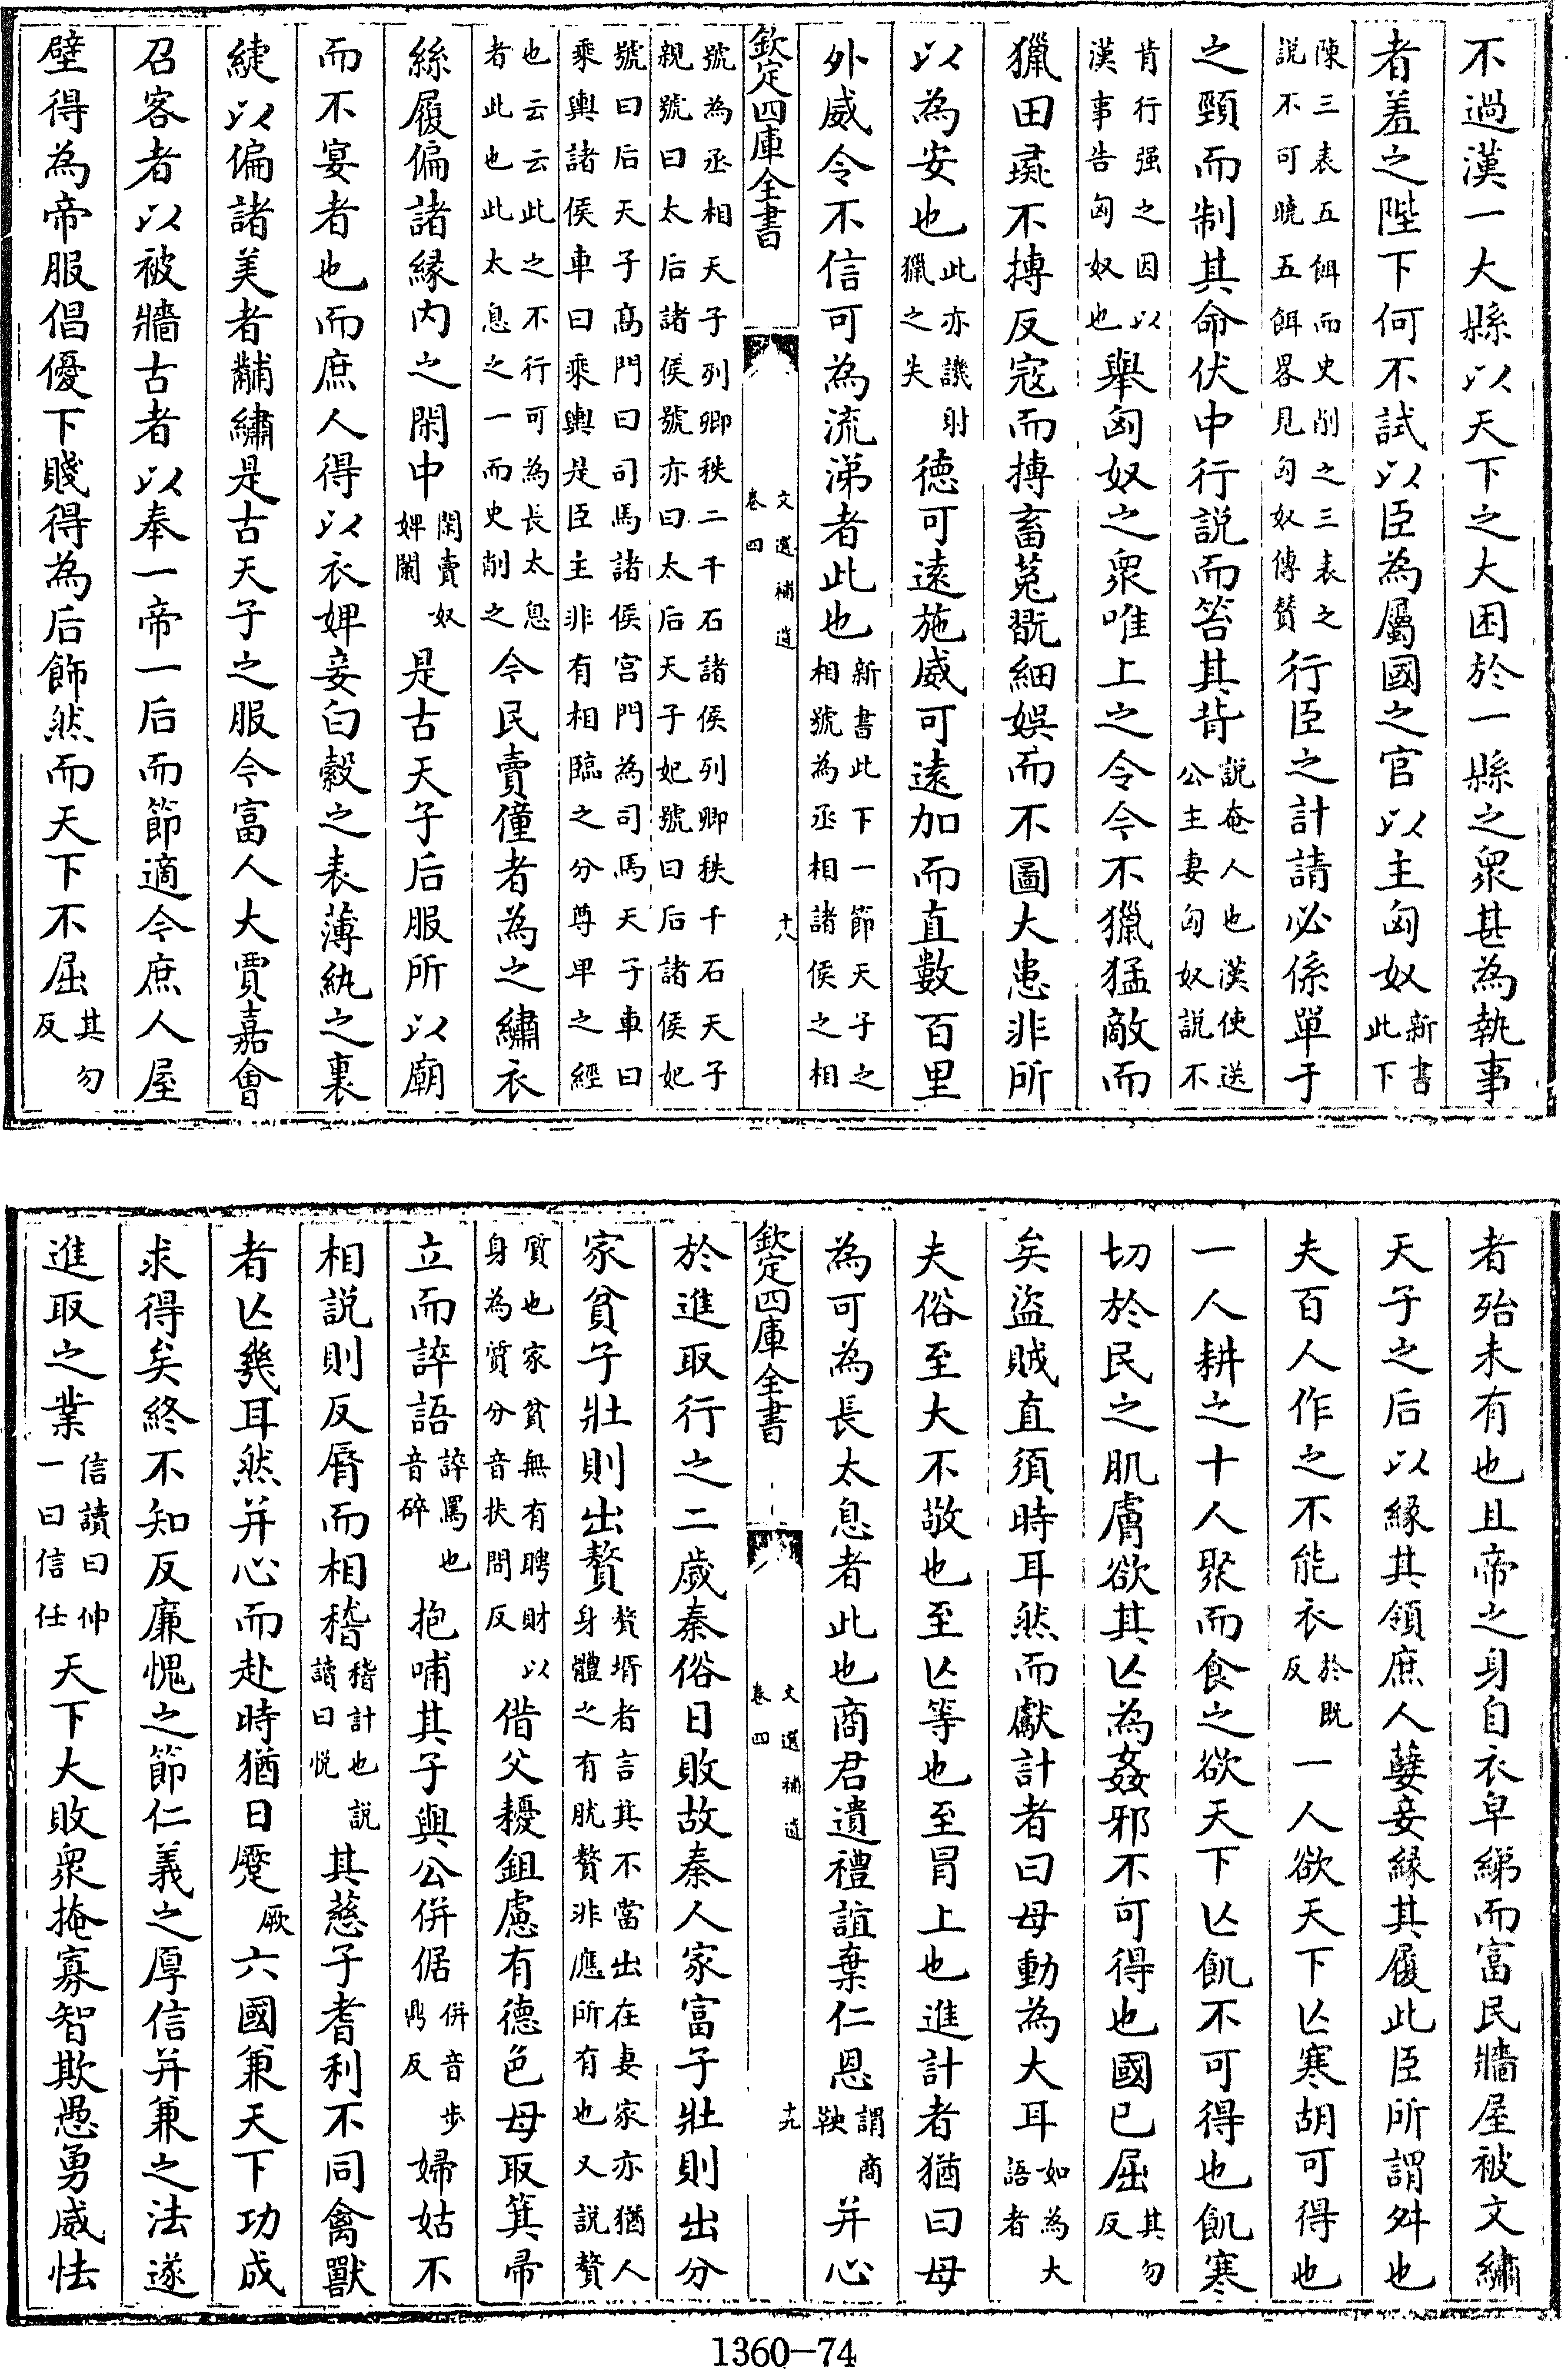 不過漢一大縣以天下之大困於一縣之衆甚為執事
者羞之陛下何不試以臣為屬國之官以主匈奴新書此下
陳三表五餌而史削之三表之説不可曉五餌畧見匈奴傳賛行臣之計請必係單于
之頸而制其命伏中行説而笞其背説奄人也漢使送公主妻匈奴説不
肯行强之因以漢事告匈奴也舉匈奴之衆唯上之令今不獵猛敵而
獵田彘不搏反寇而搏畜菟翫細娯而不圖大患非所
以為安也此亦譏射獵之失德可逺施威可逺加而直數百里
外威令不信可為流涕者此也新書此下一節天子之相號為丞相諸侯之相
欽定四庫全書
文選補遺
卷四
十八
號為丞相天子列卿秩二千石諸侯列卿秩千石天子親號曰太后諸侯號亦曰太后天子妃號曰后諸侯妃
號曰后天子髙門曰司馬諸侯宫門為司馬天子車曰乘輿諸侯車曰乘輿是臣主非有相臨之分尊卑之經
也云云此之不行可為長太息者此也此太息之一而史削之今民賣僮者為之繡衣
絲履偏諸緣内之閑中閑賣奴婢闌是古天子后服所以廟
而不宴者也而庶人得以衣婢妾白縠之表薄紈之裏
緁以偏諸美者黼繡是古天子之服今富人大賈嘉會
召客者以被牆古者以奉一帝一后而節適今庶人屋
壁得為帝服倡優下賤得為后飾然而天下不屈其勿反
者殆未有也且帝之身自衣皁綈而富民牆屋被文繡
天子之后以緣其領庶人孽妾緣其履此臣所謂舛也
夫百人作之不能衣於既反一人欲天下亾寒胡可得也
一人耕之十人聚而食之欲天下亾飢不可得也飢寒
切於民之肌膚欲其亾為姦邪不可得也國已屈其勿反
矣盜賊直須時耳然而獻計者曰毋動為大耳如為大語者
夫俗至大不敬也至亾等也至冒上也進計者猶曰毋
為可為長太息者此也商君遺禮誼棄仁恩謂商鞅并心
欽定四庫全書
文選補遺
卷四
十九
於進取行之二歲秦俗日敗故秦人家富子壯則出分
家貧子壯則出贅贅壻者言其不當出在妻家亦猶人身體之有肬贅非應所有也又説贅
質也家貧無有聘財以身為質分音扶問反借父耰鉏慮有德色母取箕帚
立而誶語誶罵也音碎抱哺其子與公併倨併音步鼎反婦姑不
相説則反脣而相稽稽計也説讀曰悦其慈子耆利不同禽獸
者亾㡬耳然并心而赴時猶曰蹷厥六國兼天下功成
求得矣終不知反廉愧之節仁義之厚信并兼之法遂
進取之業信讀曰伸一曰信任天下大敗衆掩寡智欺愚勇威怯
1360-74